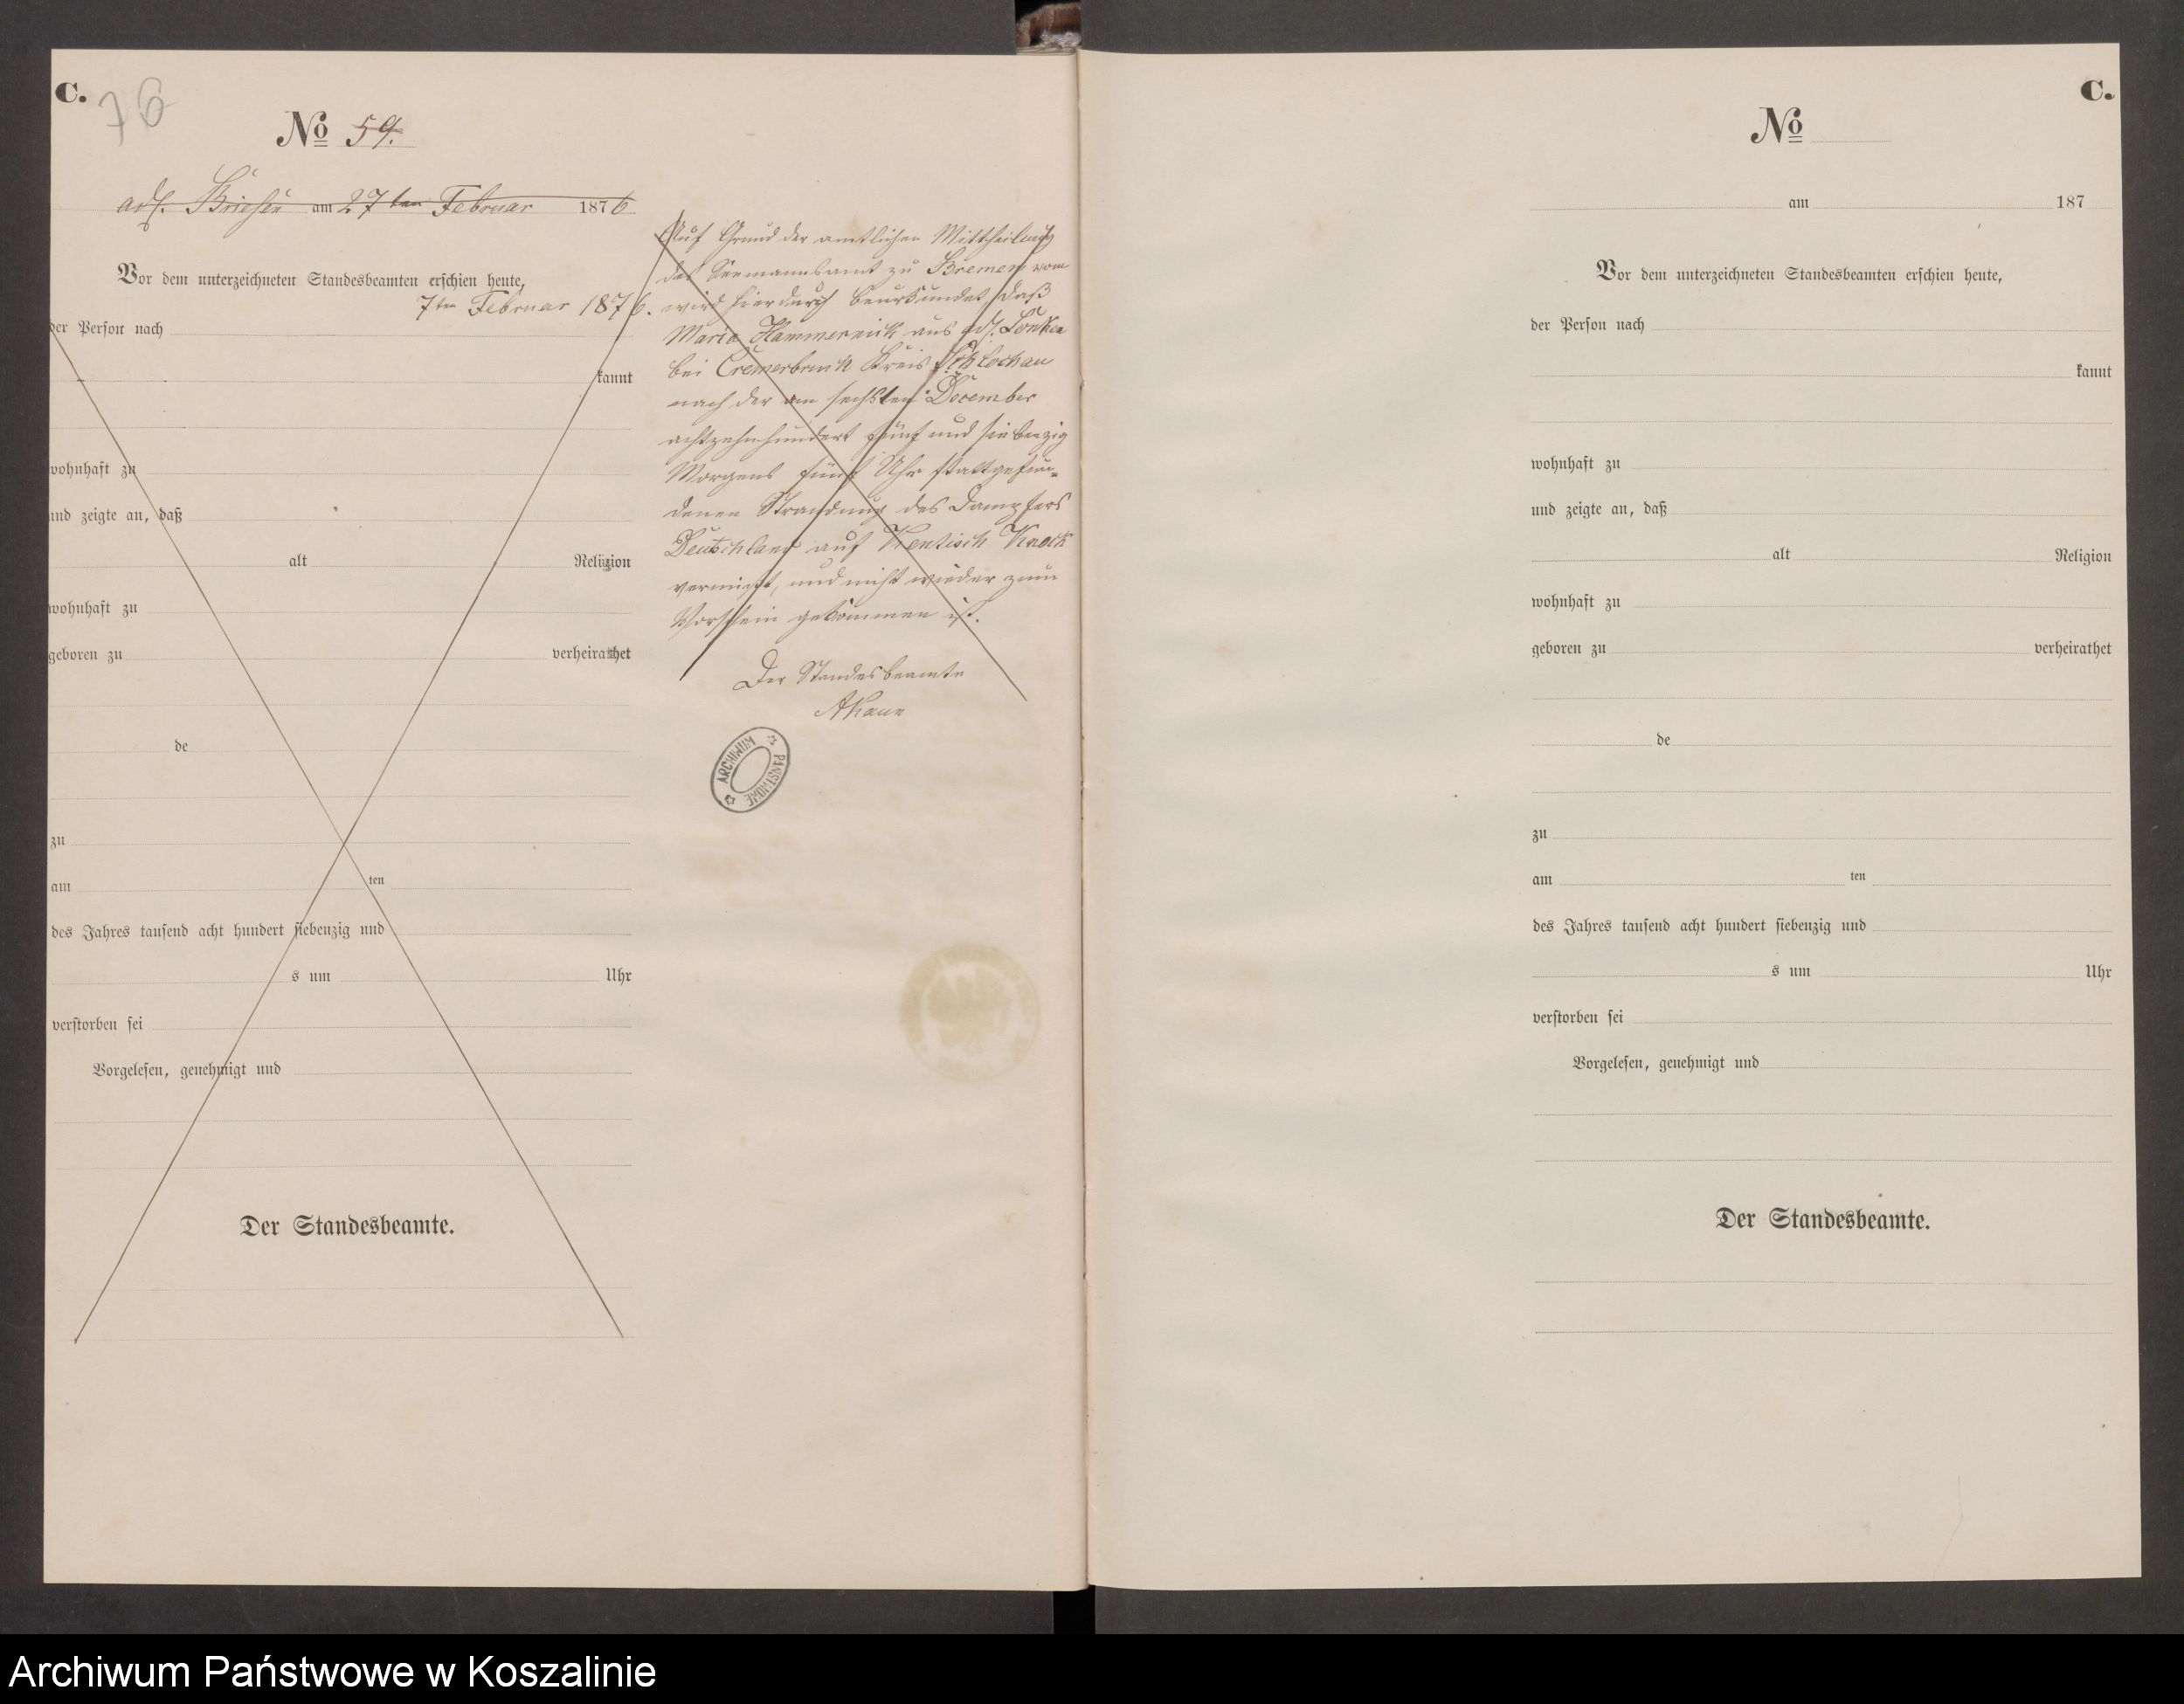 C.
76
No 59.
adl. Briesen am 27ten Februar 1876
Vor dem unterzeichneten Standesbeamten erschien heute,
der Person nach
kannt
wohnhaft zu
und zeigte an, daß
alt Religion
wohnhaft zu
geboren zu verheirathet
de
zu
am ten
des Jahres tausend acht hundert siebenzig und
s um Uhr
verstorben sei
Vorgelesen, genehmigt und
Der Standesbeamte.
Auf Grund der amtlichen Mittheilung
des Seemannsamt zu Bremen vom
7ten Februar 1876. wird hierdurch beurkundet, daß
Maria Hammernik aus adl. Lonken
bei Cremerbruch Kreis Schlochau
nach der am sechsten December
achtzehnhundert fünf und siebenzig
Morgens fünf Uhr stattgefun=
denen Strandung des Dampfers
Deutschland auf Kentisch Knock
vermißt, und nicht wieder zum
Vorschein gekommen ist.
Der Standesbeamte
ARCHIWUM PAŃSTWOWE
C.
No
am 187
Vor dem unterzeichneten Standesbeamten erschien heute,
der Person nach
kannt
wohnhaft zu
und zeigte an, daß
alt Religion
wohnhaft zu
geboren zu verheirathet
de
zu
am ten
des Jahres tausend acht hundert siebenzig und
s um Uhr
verstorben sei
Vorgelesen, genehmigt und
Der Standesbeamte.
Archiwum Państwowe w Koszalinie